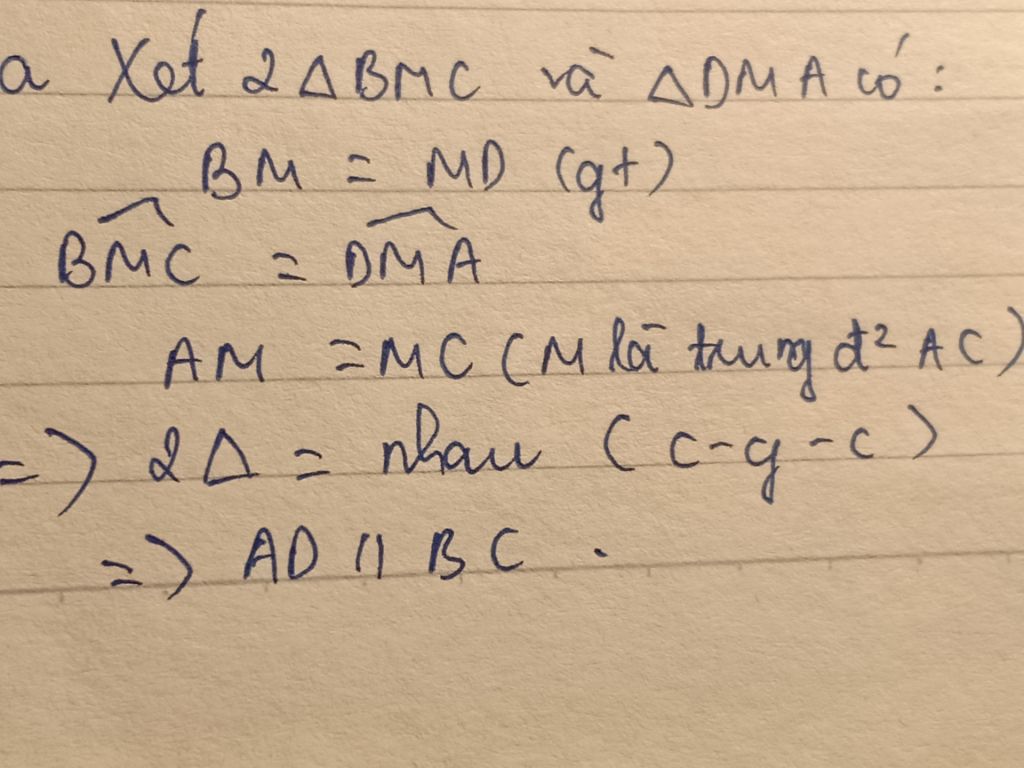 a Xét 2 △BMC và △DMA có:
BM = MD (gt)
\widehat{BMC} = \widehat{DMA}
AM = MC (M là trung đ² AC)
=> 2△ = nhau (c-g-c)
=> AD // BC.